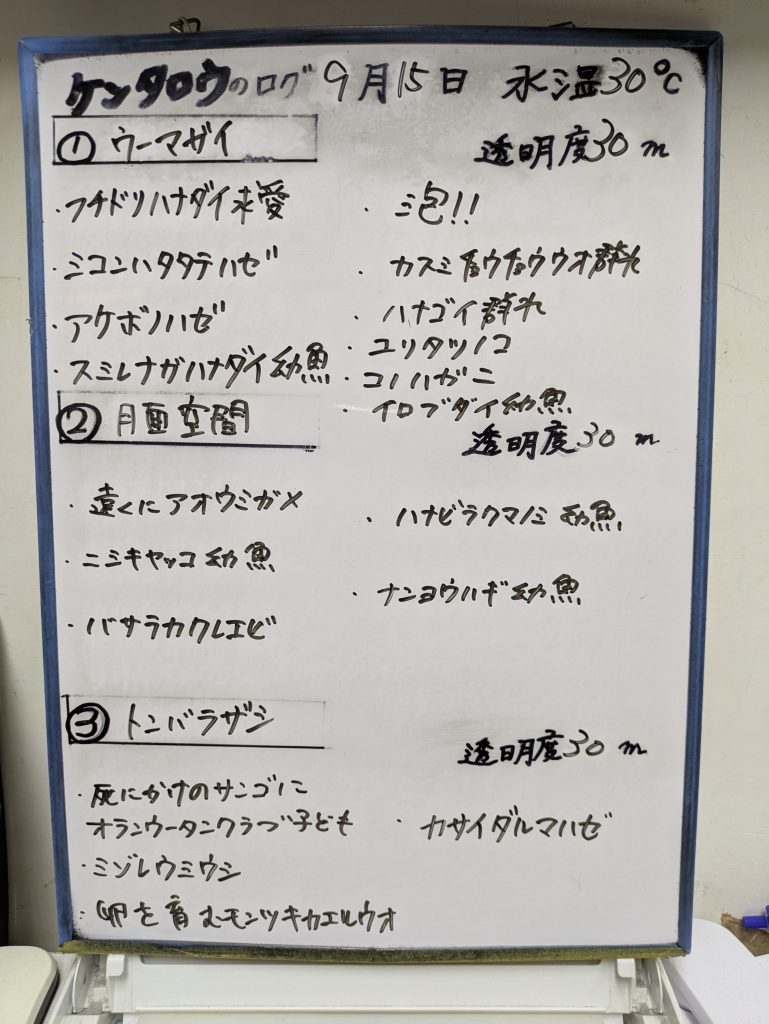 ケンタロウのログ 9月15日 水温30℃
① ウーマガイ
透明度30m
・フチドリハナダイ求愛
・ミコンハタタテハゼ
・アケボノハゼ
・スミレナガハナダイ幼魚
・泡!!
・カスミチョウチョウウオ群れ
・ハナゴイ群れ
・ユリタツノコ
・コノハガニ
・イロブダイ幼魚
② 月面空間
透明度30m
・遠くにアオウミガメ
・ニシキヤッコ幼魚
・バサラカクレエビ
・ハナビラクマノミ幼魚
・ナンヨウハギ幼魚
③ トンバラザシ
透明度30m
・死にかけのサンゴに
オランウータンクラブ子ども
・ミゾレウミウシ
・卵を育むモンツキカエルウオ
・カサイダルマハゼ